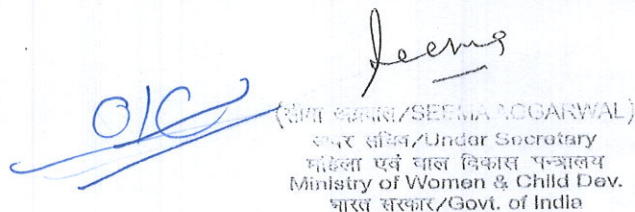 Seema
O/C
(सीमा अग्रवाल/SEEMA AGGARWAL)
अवर सचिव/Under Secretary
महिला एवं बाल विकास मन्त्रालय
Ministry of Women & Child Dev.
भारत सरकार/Govt. of India